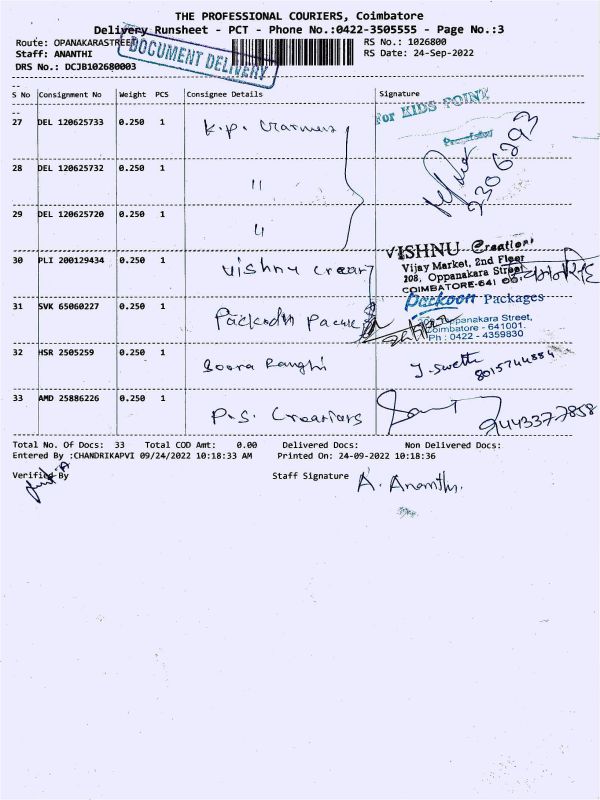 THE PROFESSIONAL COURIERS, Coimbatore
Delivery Runsheet - PCT - Phone No.:0422-3505555 - Page No.:3
Route: OPANAKARASTREET RS No.: 1026800
DOCUMENT DELIVERY
Staff: ANANTHI RS Date: 24-Sep-2022
DRS No.: DCJB102680003
S No Consignment No Weight PCS Consignee Details Signature
For KIDS POINT
27 DEL 120625733 0.250 1 K.p.
Proprietor
28 DEL 120625732 0.250 1 "
29 DEL 120625720 0.250 1 "
VISHNU Creation
Vijay Market, 2nd Floor
30 PLI 200129434 0.250 1 Vishnu
208, Oppanakara Street
COIMBATORE-641
Packoon Packages
31 SVK 65060227 0.250 1
Oppanakara Street,
Coimbatore - 641001.
Ph : 0422 - 4359830
32 HSR 2505259 0.250 1 Boora
J. Swetha
33 AMD 25886226 0.250 1 P.S. Creations
Total No. Of Docs: 33 Total COD Amt: 0.00 Delivered Docs: Non Delivered Docs:
Entered By :CHANDRIKAPVI 09/24/2022 10:18:33 AM Printed On: 24-09-2022 10:18:36
Verified By Staff Signature A. Ananthi.